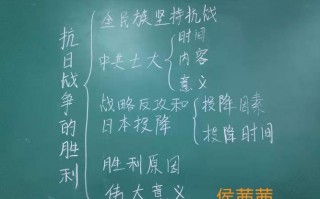 抗日战争的胜利
全民族坚持抗战
中共七大
时间
内容
意义
战略反攻和
日本投降
投降因素
投降时间
胜利原因
伟大意义